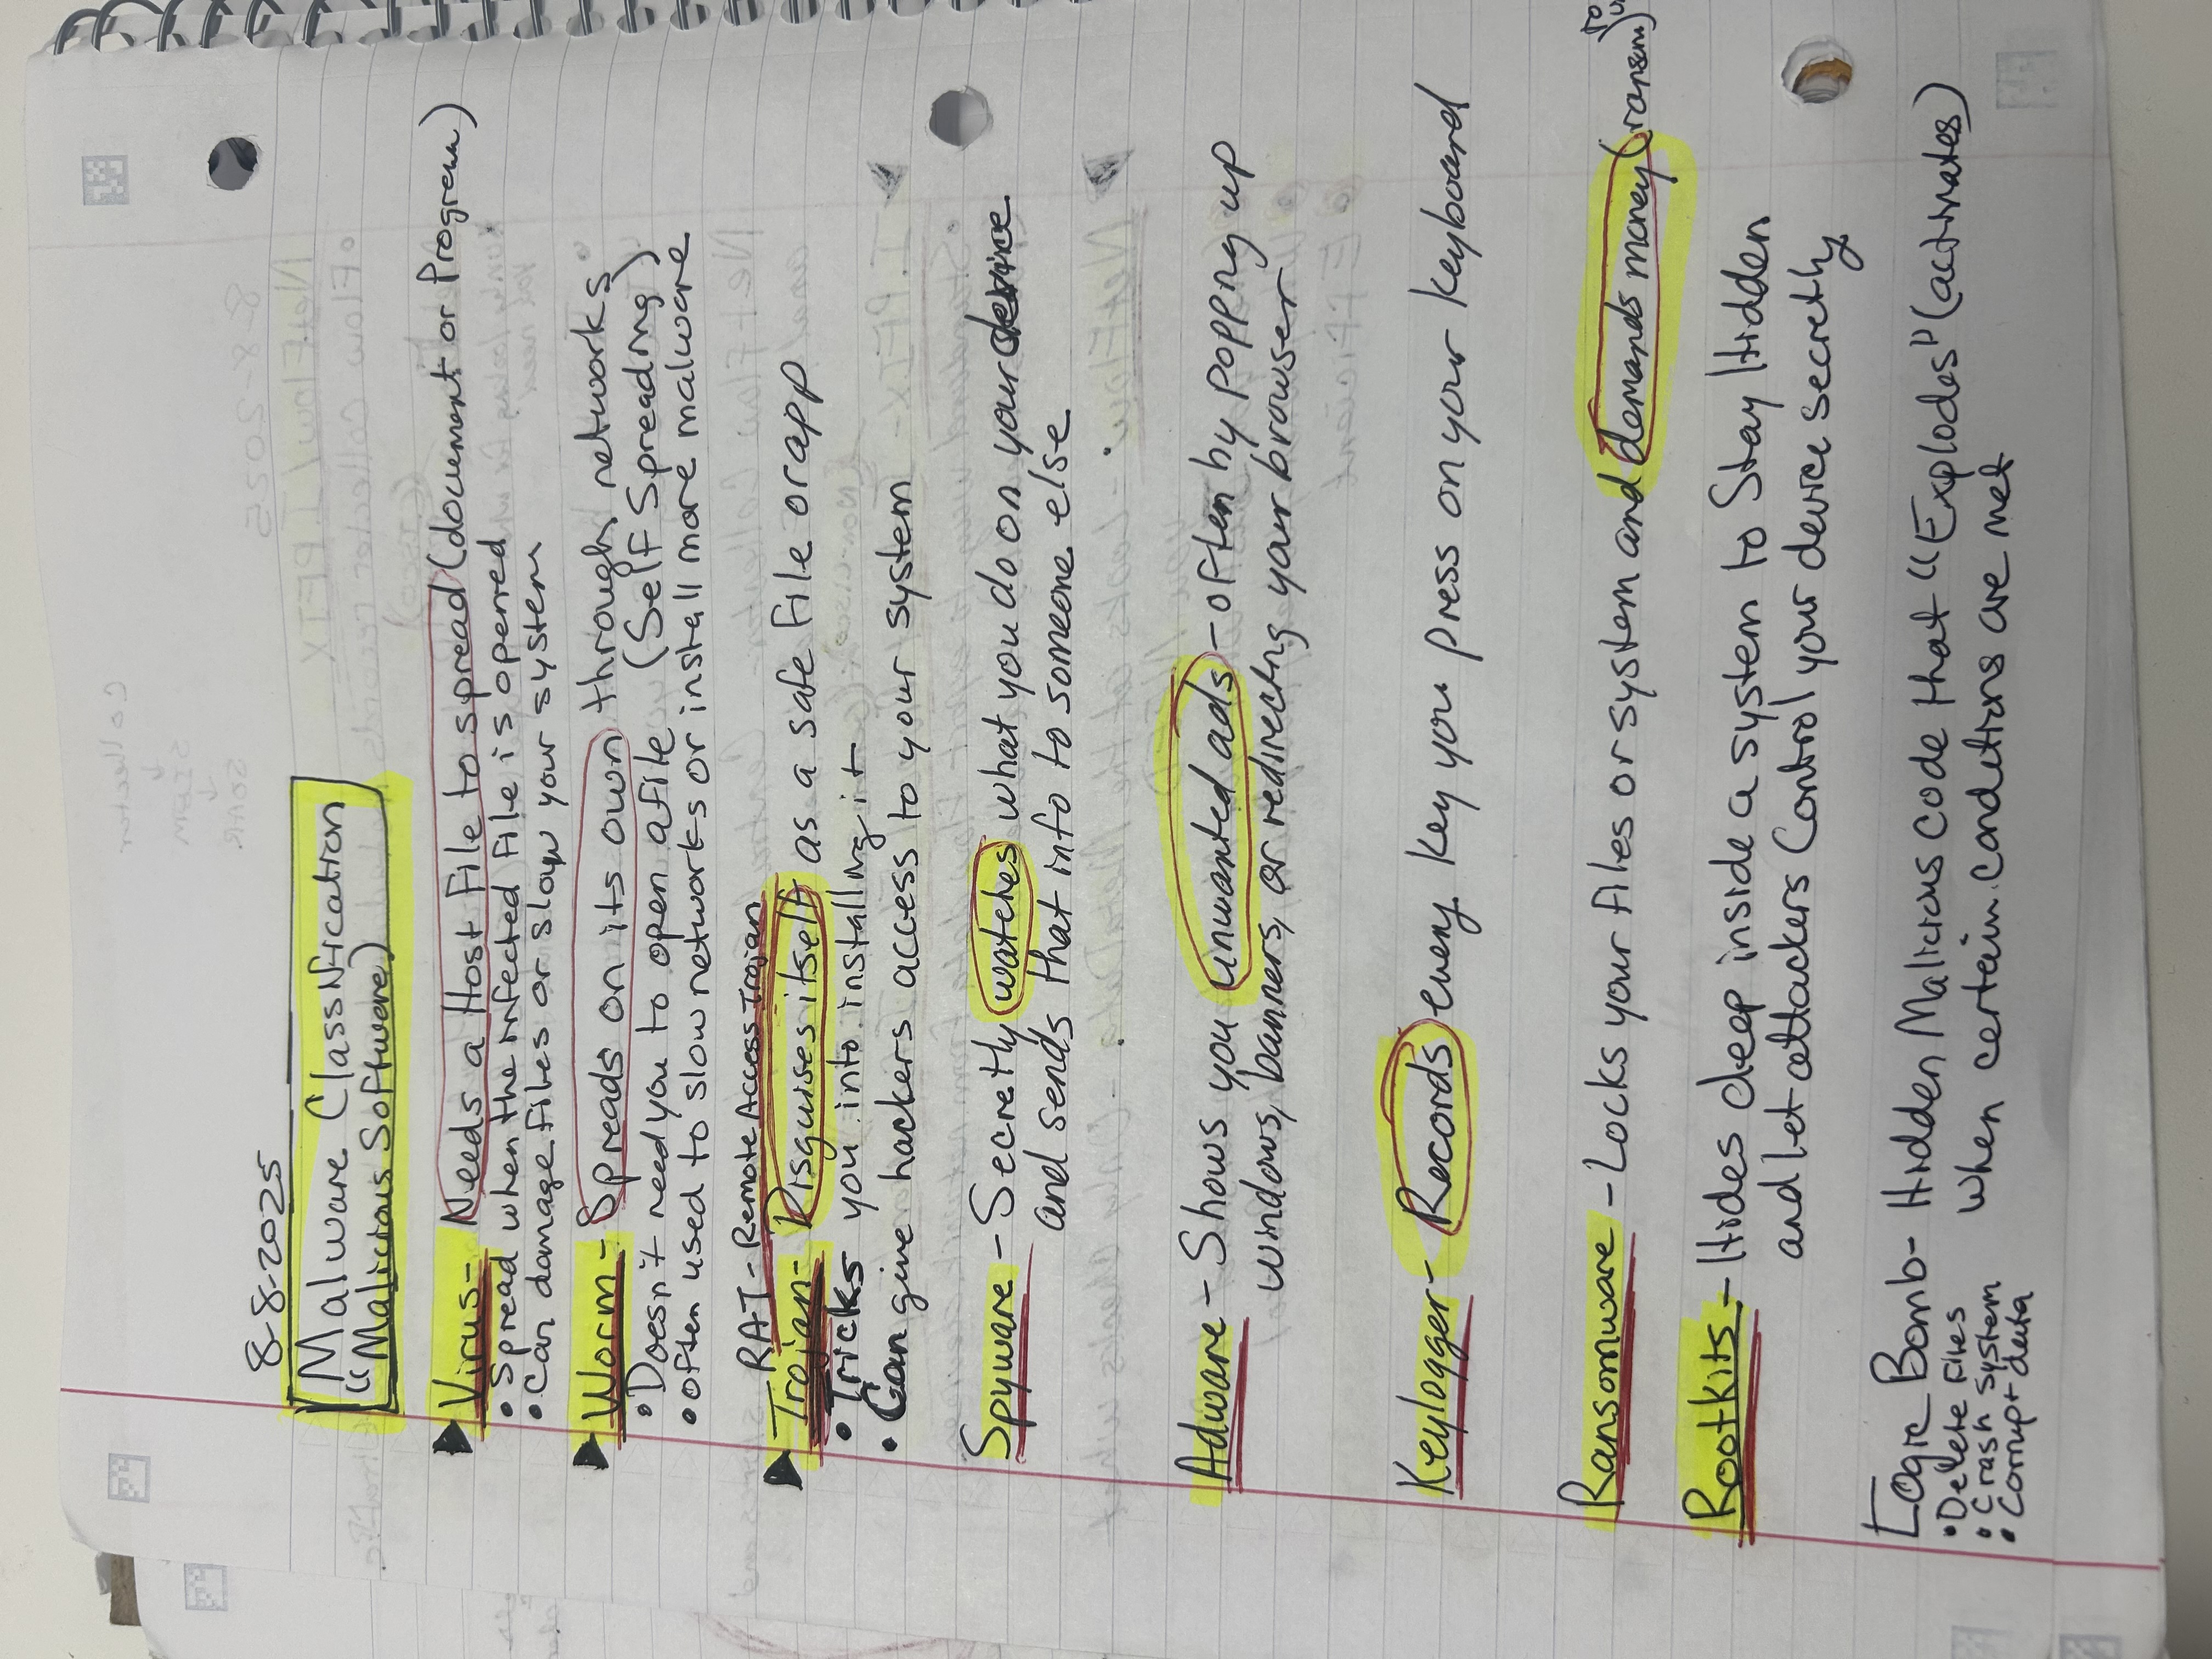 8-8-2025
Malware Classification
"Malicious Software)
Virus- Needs a Host File to spread (document or Program)
• Spread when the infected File is opened
• Can damage files or slow your system
Worm- Spreads on its own through networks
• Doesn't need you to open a file (Self Spreading)
• often used to slow networks or install more malware
RAT- Remote Access Trojan
Trojan- Disguises itself as a safe File or app
• Tricks you into installing it
• Can give hackers access to your system
Spyware - Secretly watches what you do on your device
and sends that info to someone else
Adware - Shows you unwanted ads - often by popping up
windows, banners, or redirecting your browser
Keylogger- Records every key you press on your keyboard
Ransomware - Locks your files or system and demands money (ransom)
Rootkits - Hides deep inside a system to Stay Hidden
and let attackers Control your device secretly
Logic Bomb- Hidden Malicious code that "Explodes" (activates)
when certain conditions are met
• Delete Files
• Crash System
• Corrupt data